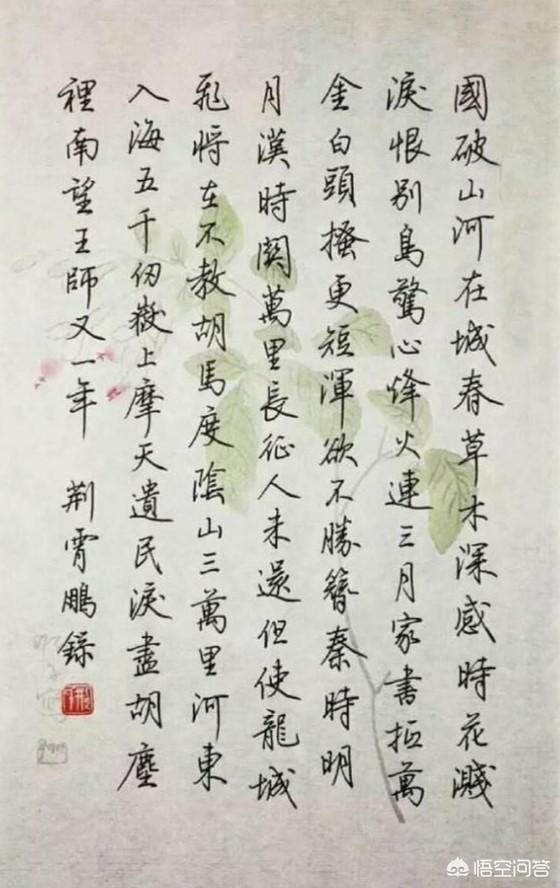 國破山河在城春草木深感時花濺
淚恨別鳥驚心烽火連三月家書抵萬
金白頭搔更短渾欲不勝簪秦時明
月漢時關萬里長征人未還但使龍城
飛將在不教胡馬度陰山三萬里河東
入海五千仞嶽上摩天遺民淚盡胡塵
裡南望王師又一年 荊霄鵬錄
悟空问答